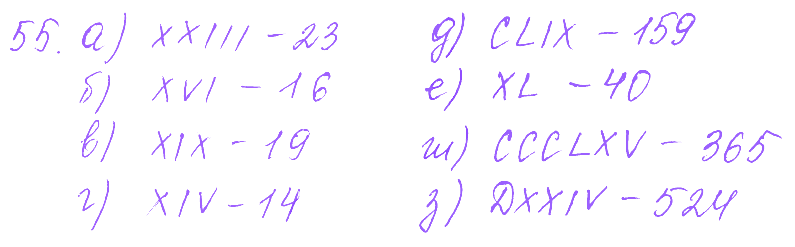 55. а) XXIII – 23
б) XVI – 16
в) XIX – 19
г) XIV – 14
д) CLIX – 159
е) XL – 40
ж) CCCLXV – 365
з) DXXIV – 524